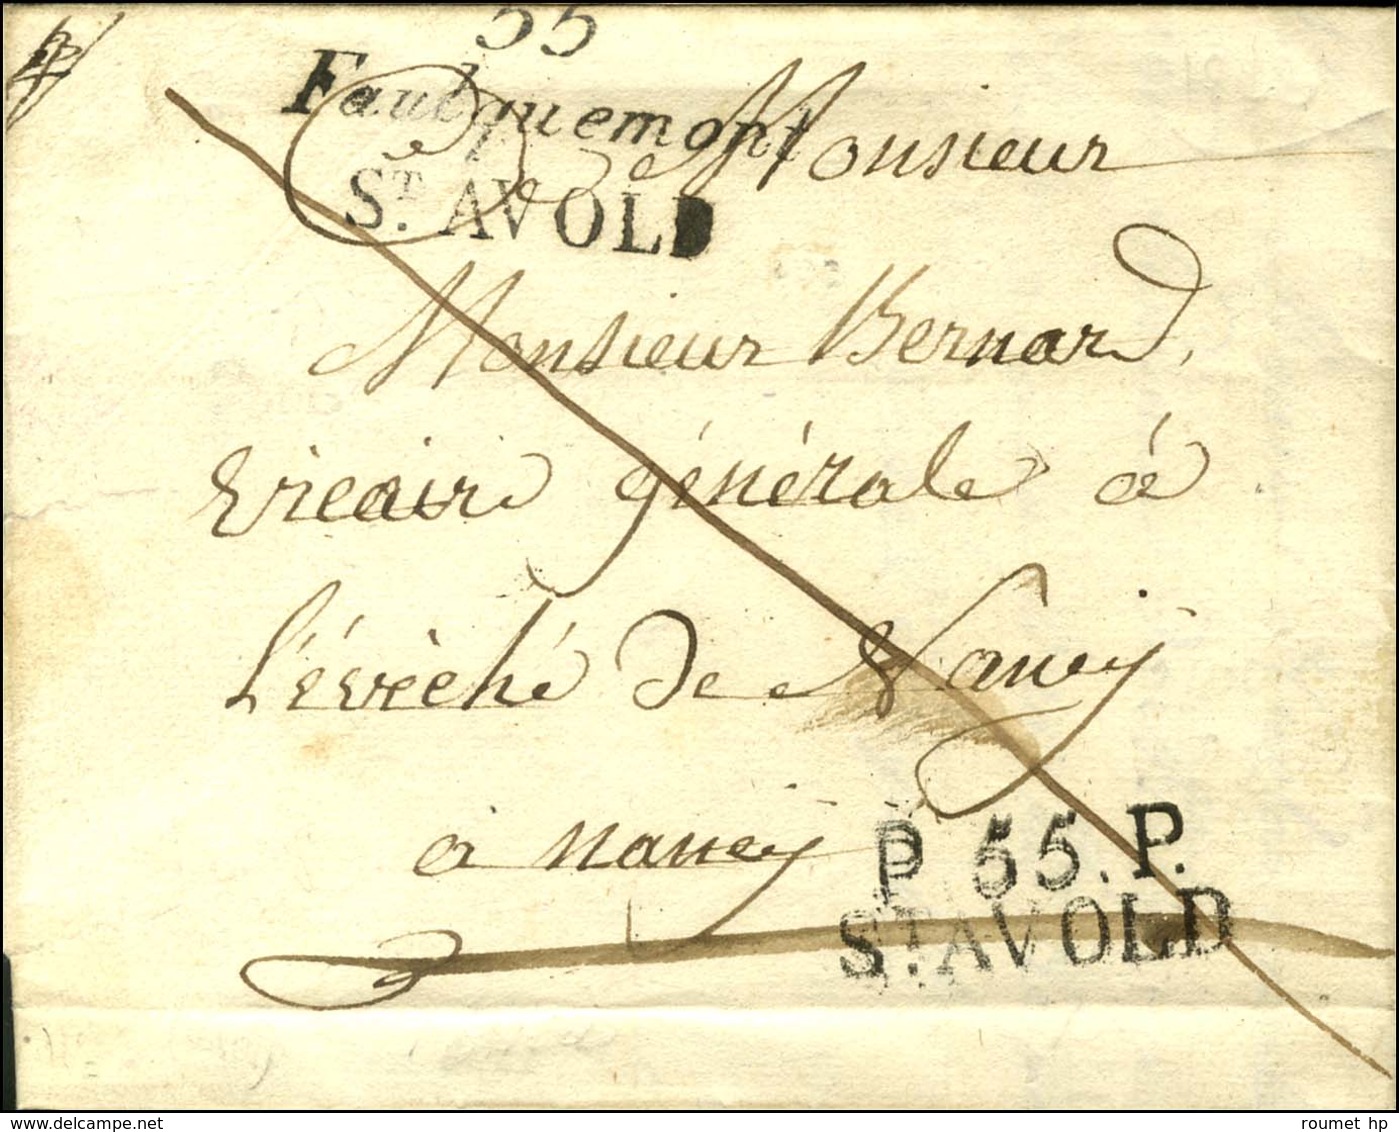 55
Faulquemont
ST. AVOLD
à Monsieur
Monsieur Bernard,
Vicair générale à
L'évèché de Nancy
à Nancy
P. 55. P.
ST. AVOLD
www.delcampe.net
roumet hp